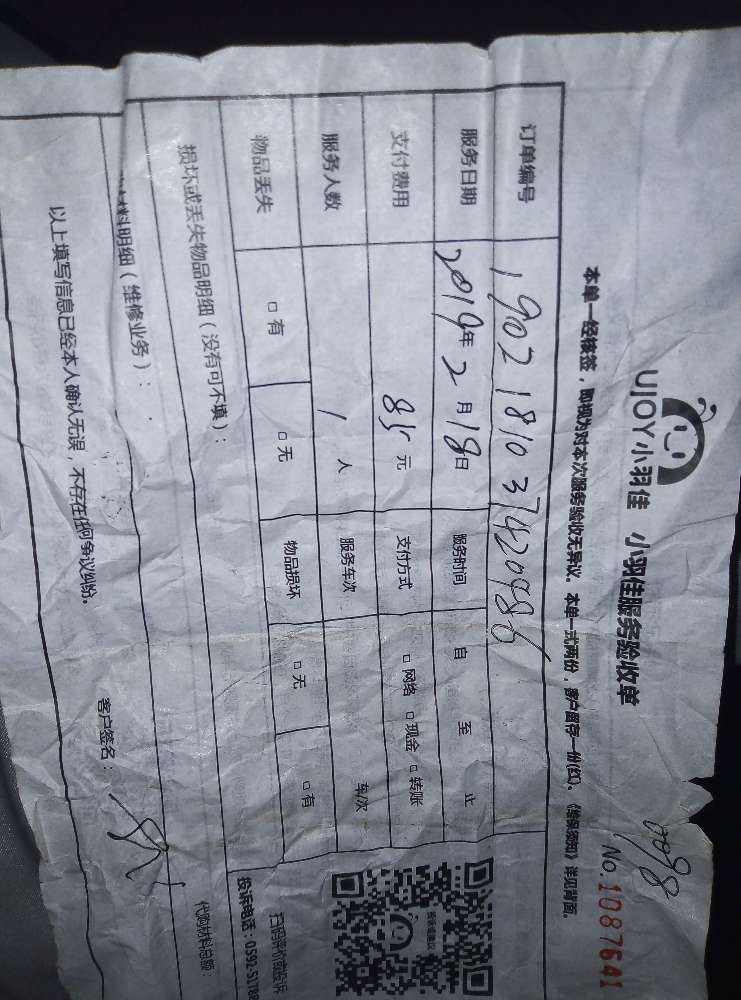 UJOY小羽佳 小羽佳服务验收单
No.1087641
本单一经核签，即视为对本次服务验收无异议。本单一式两份，客户留存一份(红)。《维保须知》详见背面。
订单编号 1902181037420986
服务日期 2019年2月18日 服务时间 自 至 止
支付费用 85元 支付方式 □网络 □现金 □转账
服务人数 1人 服务车次 车/次
物品丢失 □有 □无 物品损坏 □无 □有
损坏或丢失物品明细（没有可不填）：
料明细（维修业务）：
代购材料总额：
以上填写信息已经本人确认无误，不存在任何争议纠纷。
客户签名：
扫码评价或投诉
投诉电话：0592-51788